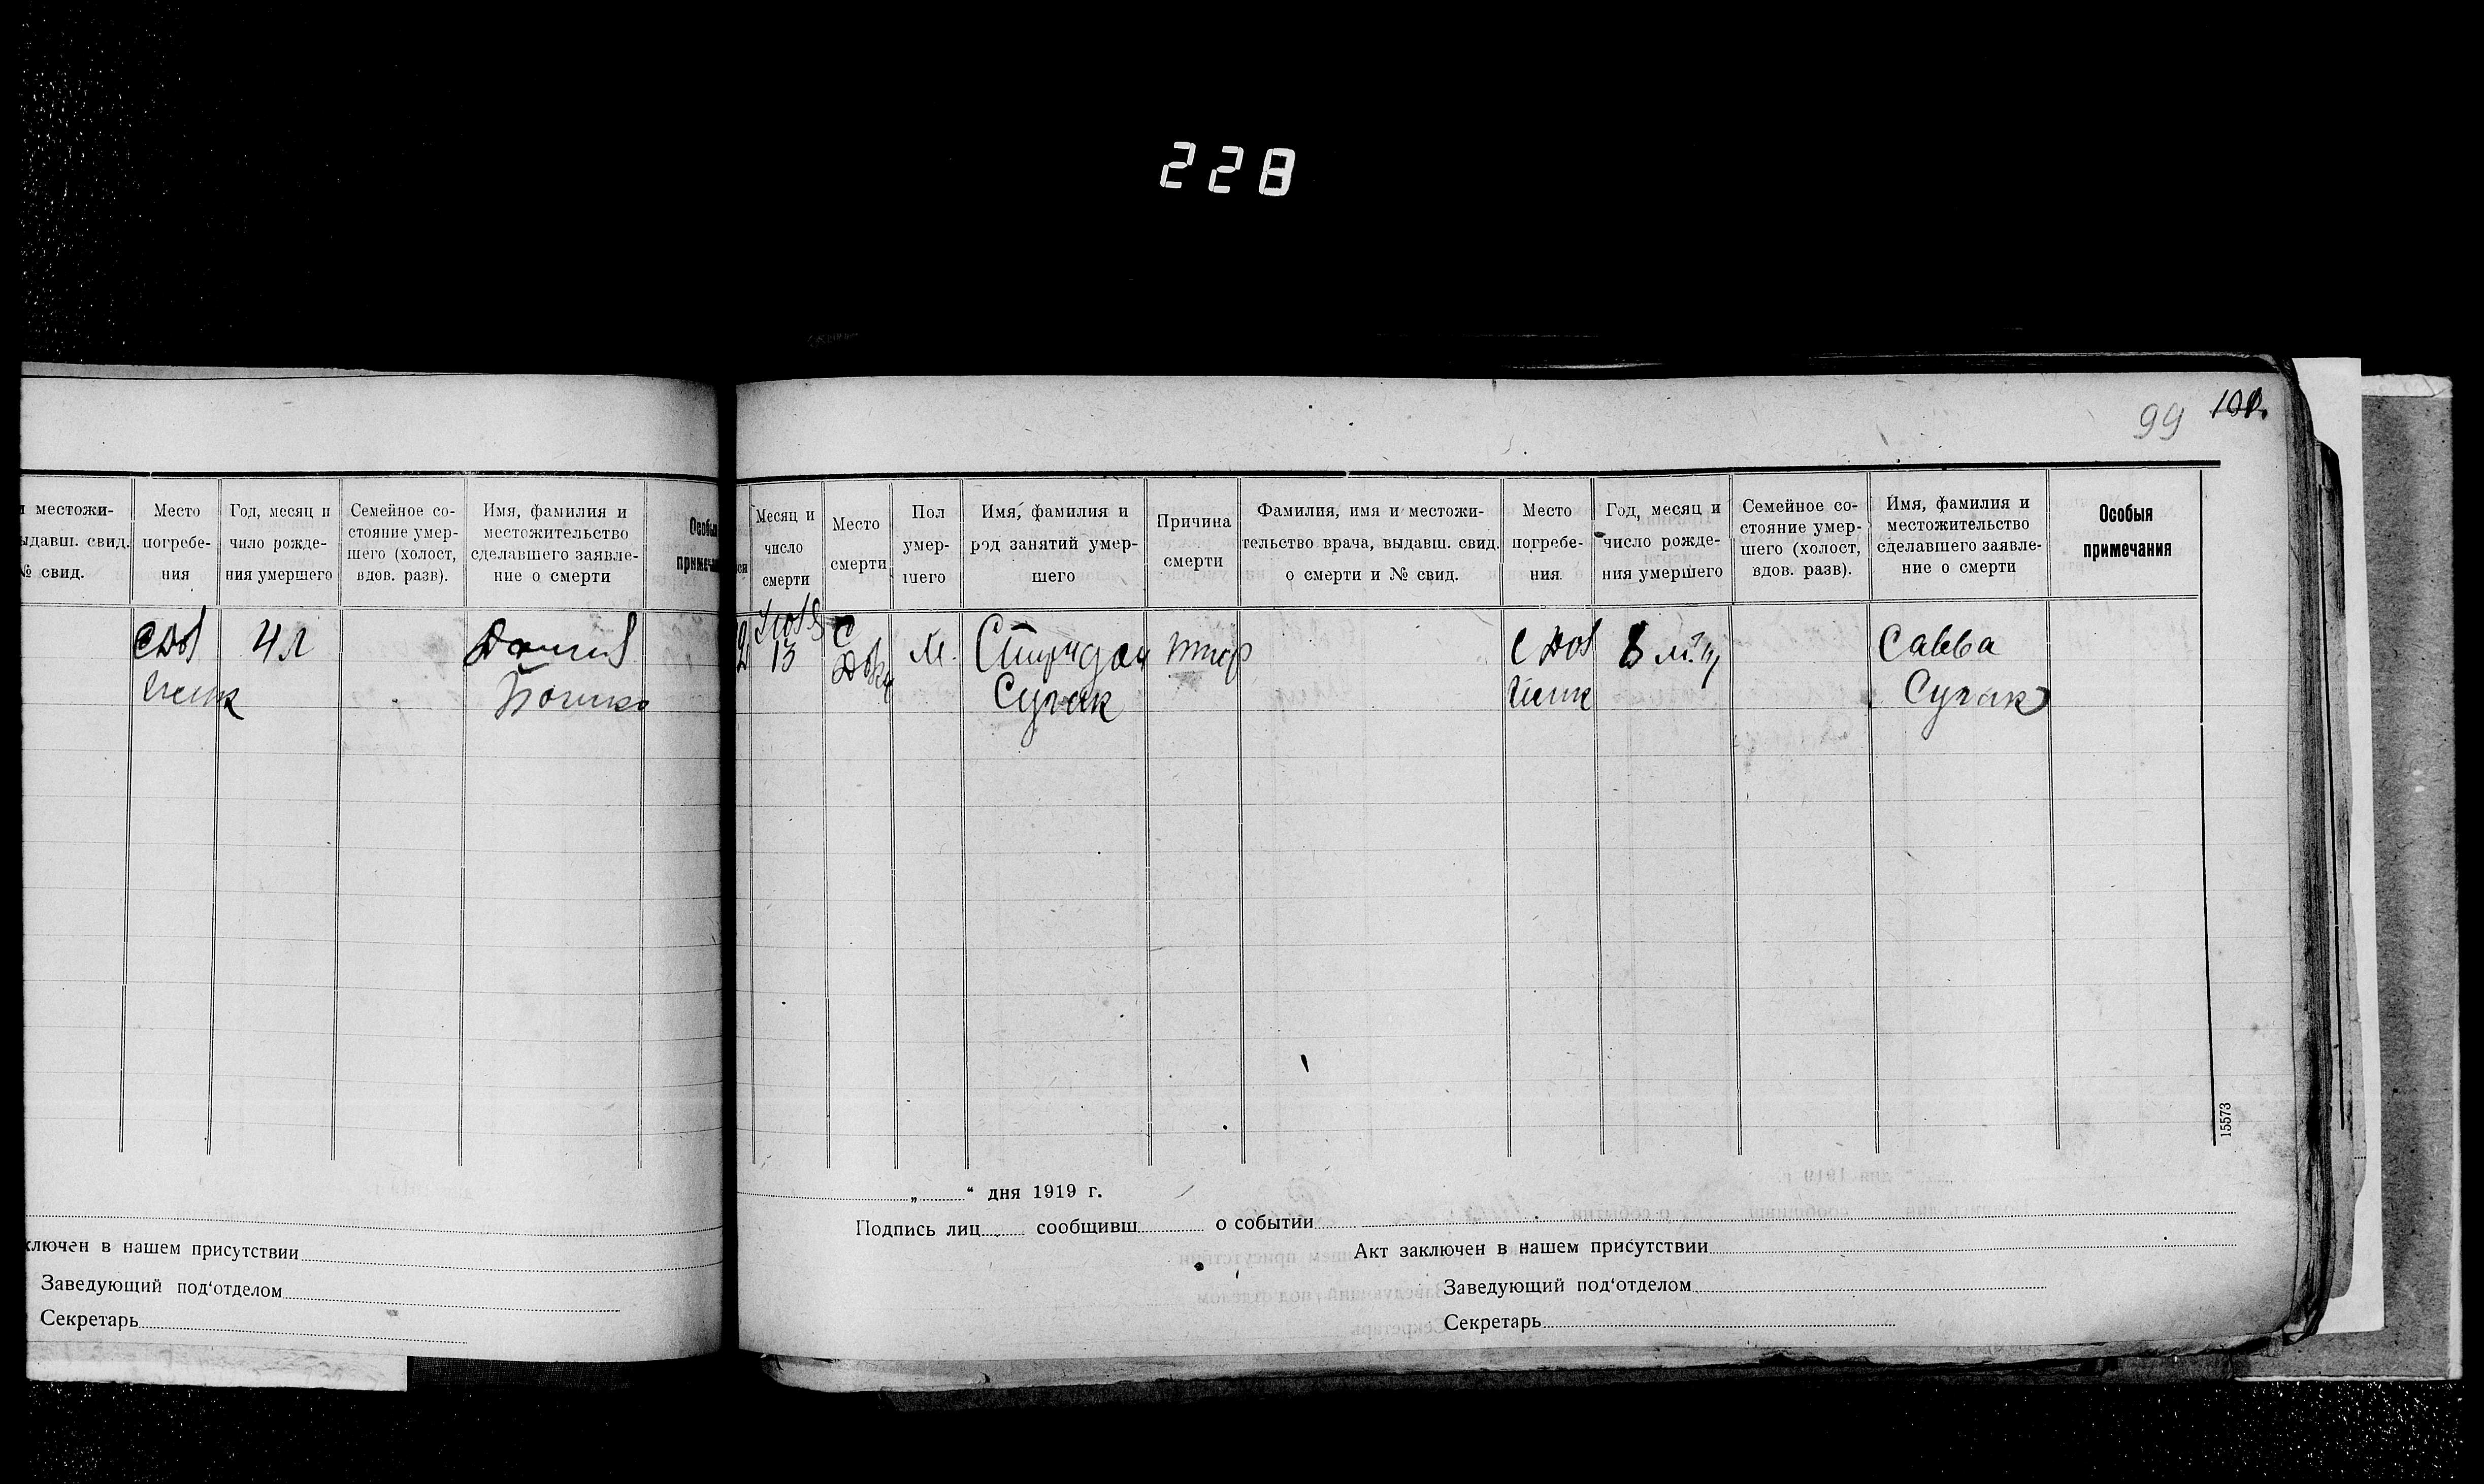 228
99
и местожи-
выдавш. свид.
№ свид.
Место
погребе-
ния
Год, месяц и
чило рожде-
ния умершего
Семейное со-
стояние умер-
шего (холост,
вдов. разв).
Имя, фамилия и
местожительство
сделавшего заявле-
ние о смерти
4 л
ключен в нашем присутствии
Заведующий под'отделом
Секретарь
Месяц и
число
смерти
Место
смерти
Пол
умер-
шего
Имя, фамилия и
род занятий умер-
шего
Причина
смерти
Фамилия, имя и местожи-
тельство врача, выдавш. свид.
о смерти и № свид.
Место
погребе-
ния
Год, месяц и
число рожде-
ния умершего
Семейное со-
стояние умер-
шего (холост,
вдов. разв).
Имя, фамилия и
местожительство
сделавшего заявле-
ние о смерти
Особыя
примечания
13
С
м.
Сугак
тиф
С Дов
8
Савва
Сугак
15573
„ “ дня 1919 г.
Подпись лиц сообщивш о событии
Акт заключен в нашем присутствии
Заведующий под'отделом
Секретарь